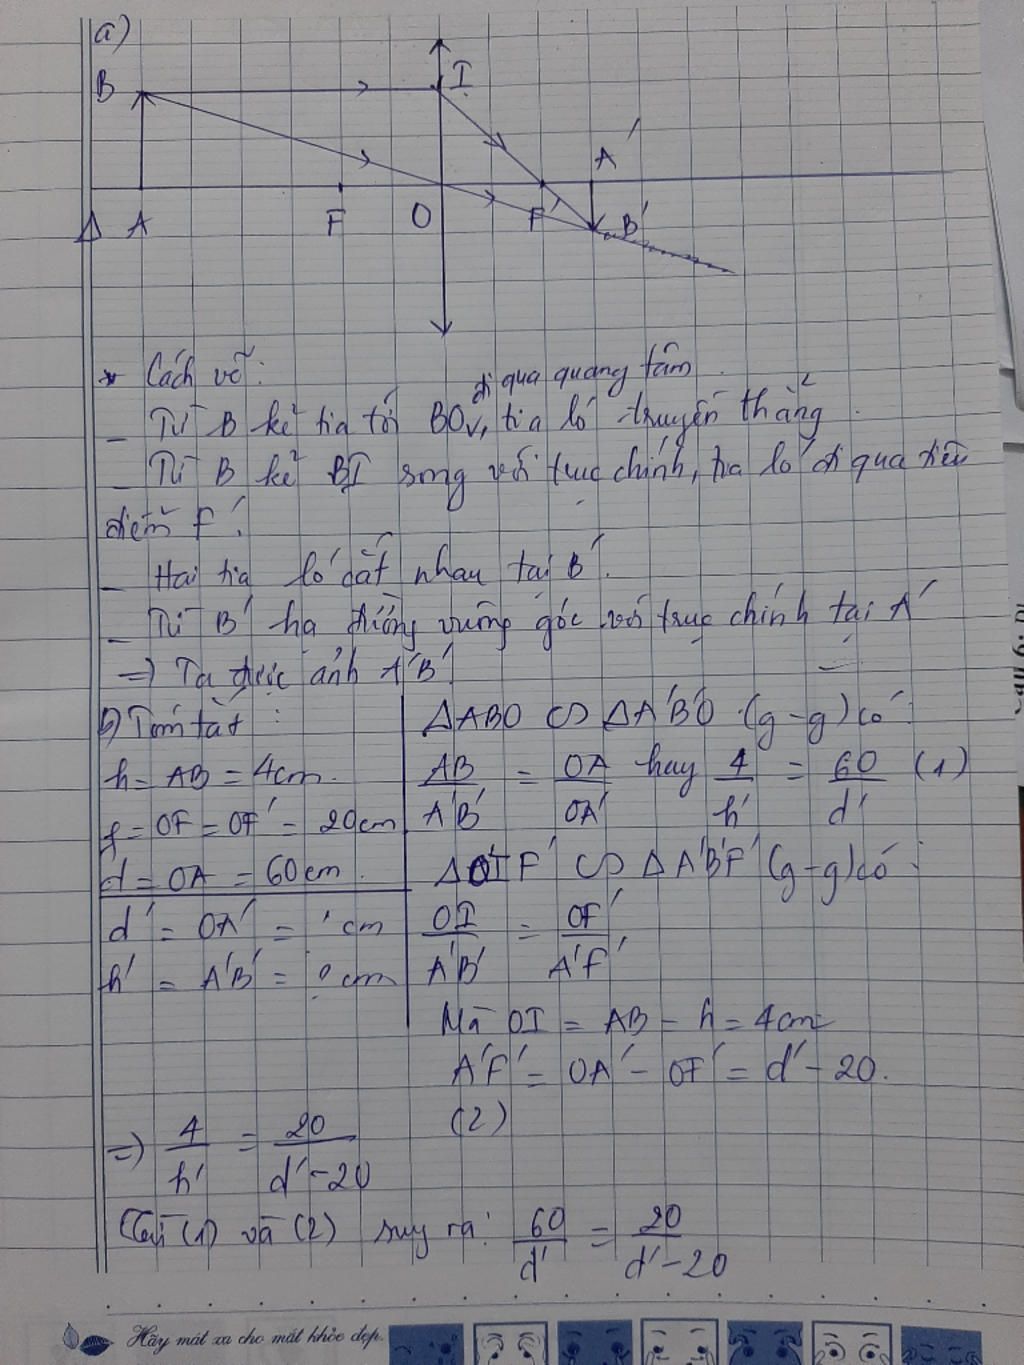 a)
B
I
A'
Δ A
F
O
F'
B'
* Cách vẽ:
đi qua quang tâm
- Từ B kẻ tia tới BO, tia ló truyền thẳng.
- Từ B kẻ BI song với trục chính, tia ló đi qua tiêu
điểm F'.
- Hai tia ló cắt nhau tại B'.
- Từ B' hạ đường vuông góc với trục chính tại A'
=> Ta được ảnh A'B'
b) Tóm tắt:
h = AB = 4cm.
f = OF = OF' = 20cm
d = OA = 60cm.
d' = OA' = ? cm
h' = A'B' = ? cm
ΔABO ∽ ΔA'B'O (g-g) có:
AB/A'B' = OA/OA' hay 4/h' = 60/d' (1)
ΔOIF' ∽ ΔA'B'F' (g-g) có:
OI/A'B' = OF'/A'F'
Mà OI = AB = h = 4cm
A'F' = OA' - OF' = d' - 20.
=> 4/h' = 20/d'-20 (2)
Từ (1) và (2) suy ra: 60/d' = 20/d'-20
Hãy mát xa cho mắt khỏe đẹp.